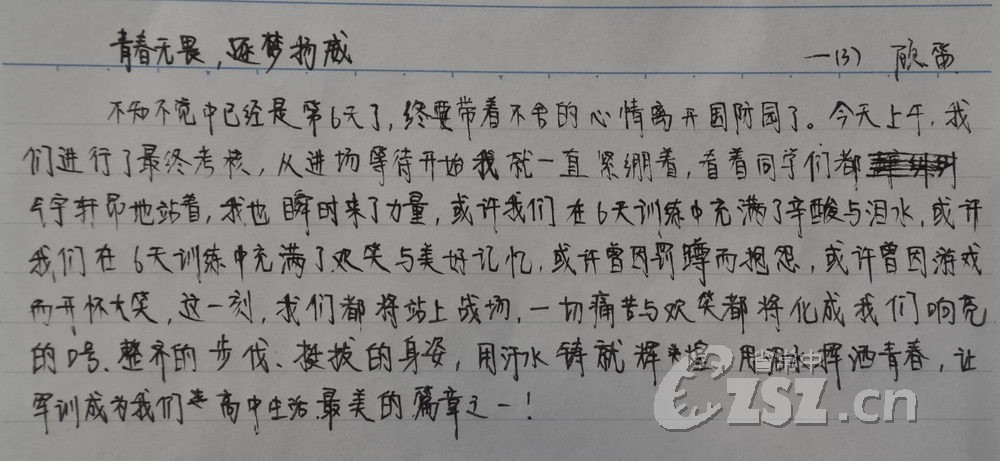 青春无畏，逐梦扬威 一(3) 顾
不知不觉中已经是第6天了，终要带着不舍的心情离开国防园了。今天上午，我
们进行了最终考核，从进场等待开始我就一直紧绷着，看着同学们都
气宇轩昂地站着，我也瞬时来了力量，或许我们在6天训练中充满了辛酸与泪水，或许
我们在6天训练中充满了欢笑与美好记忆，或许曾因罚蹲而抱怨，或许曾因游戏
而开怀大笑，这一刻，我们都将站上战场，一切痛苦与欢笑都将化成我们响亮
的口号、整齐的步伐、挺拔的身姿，用汗水铸就辉煌，用泪水挥洒青春，让
军训成为我们高中生活最美的篇章之一！
省常中
CZSZ.cn